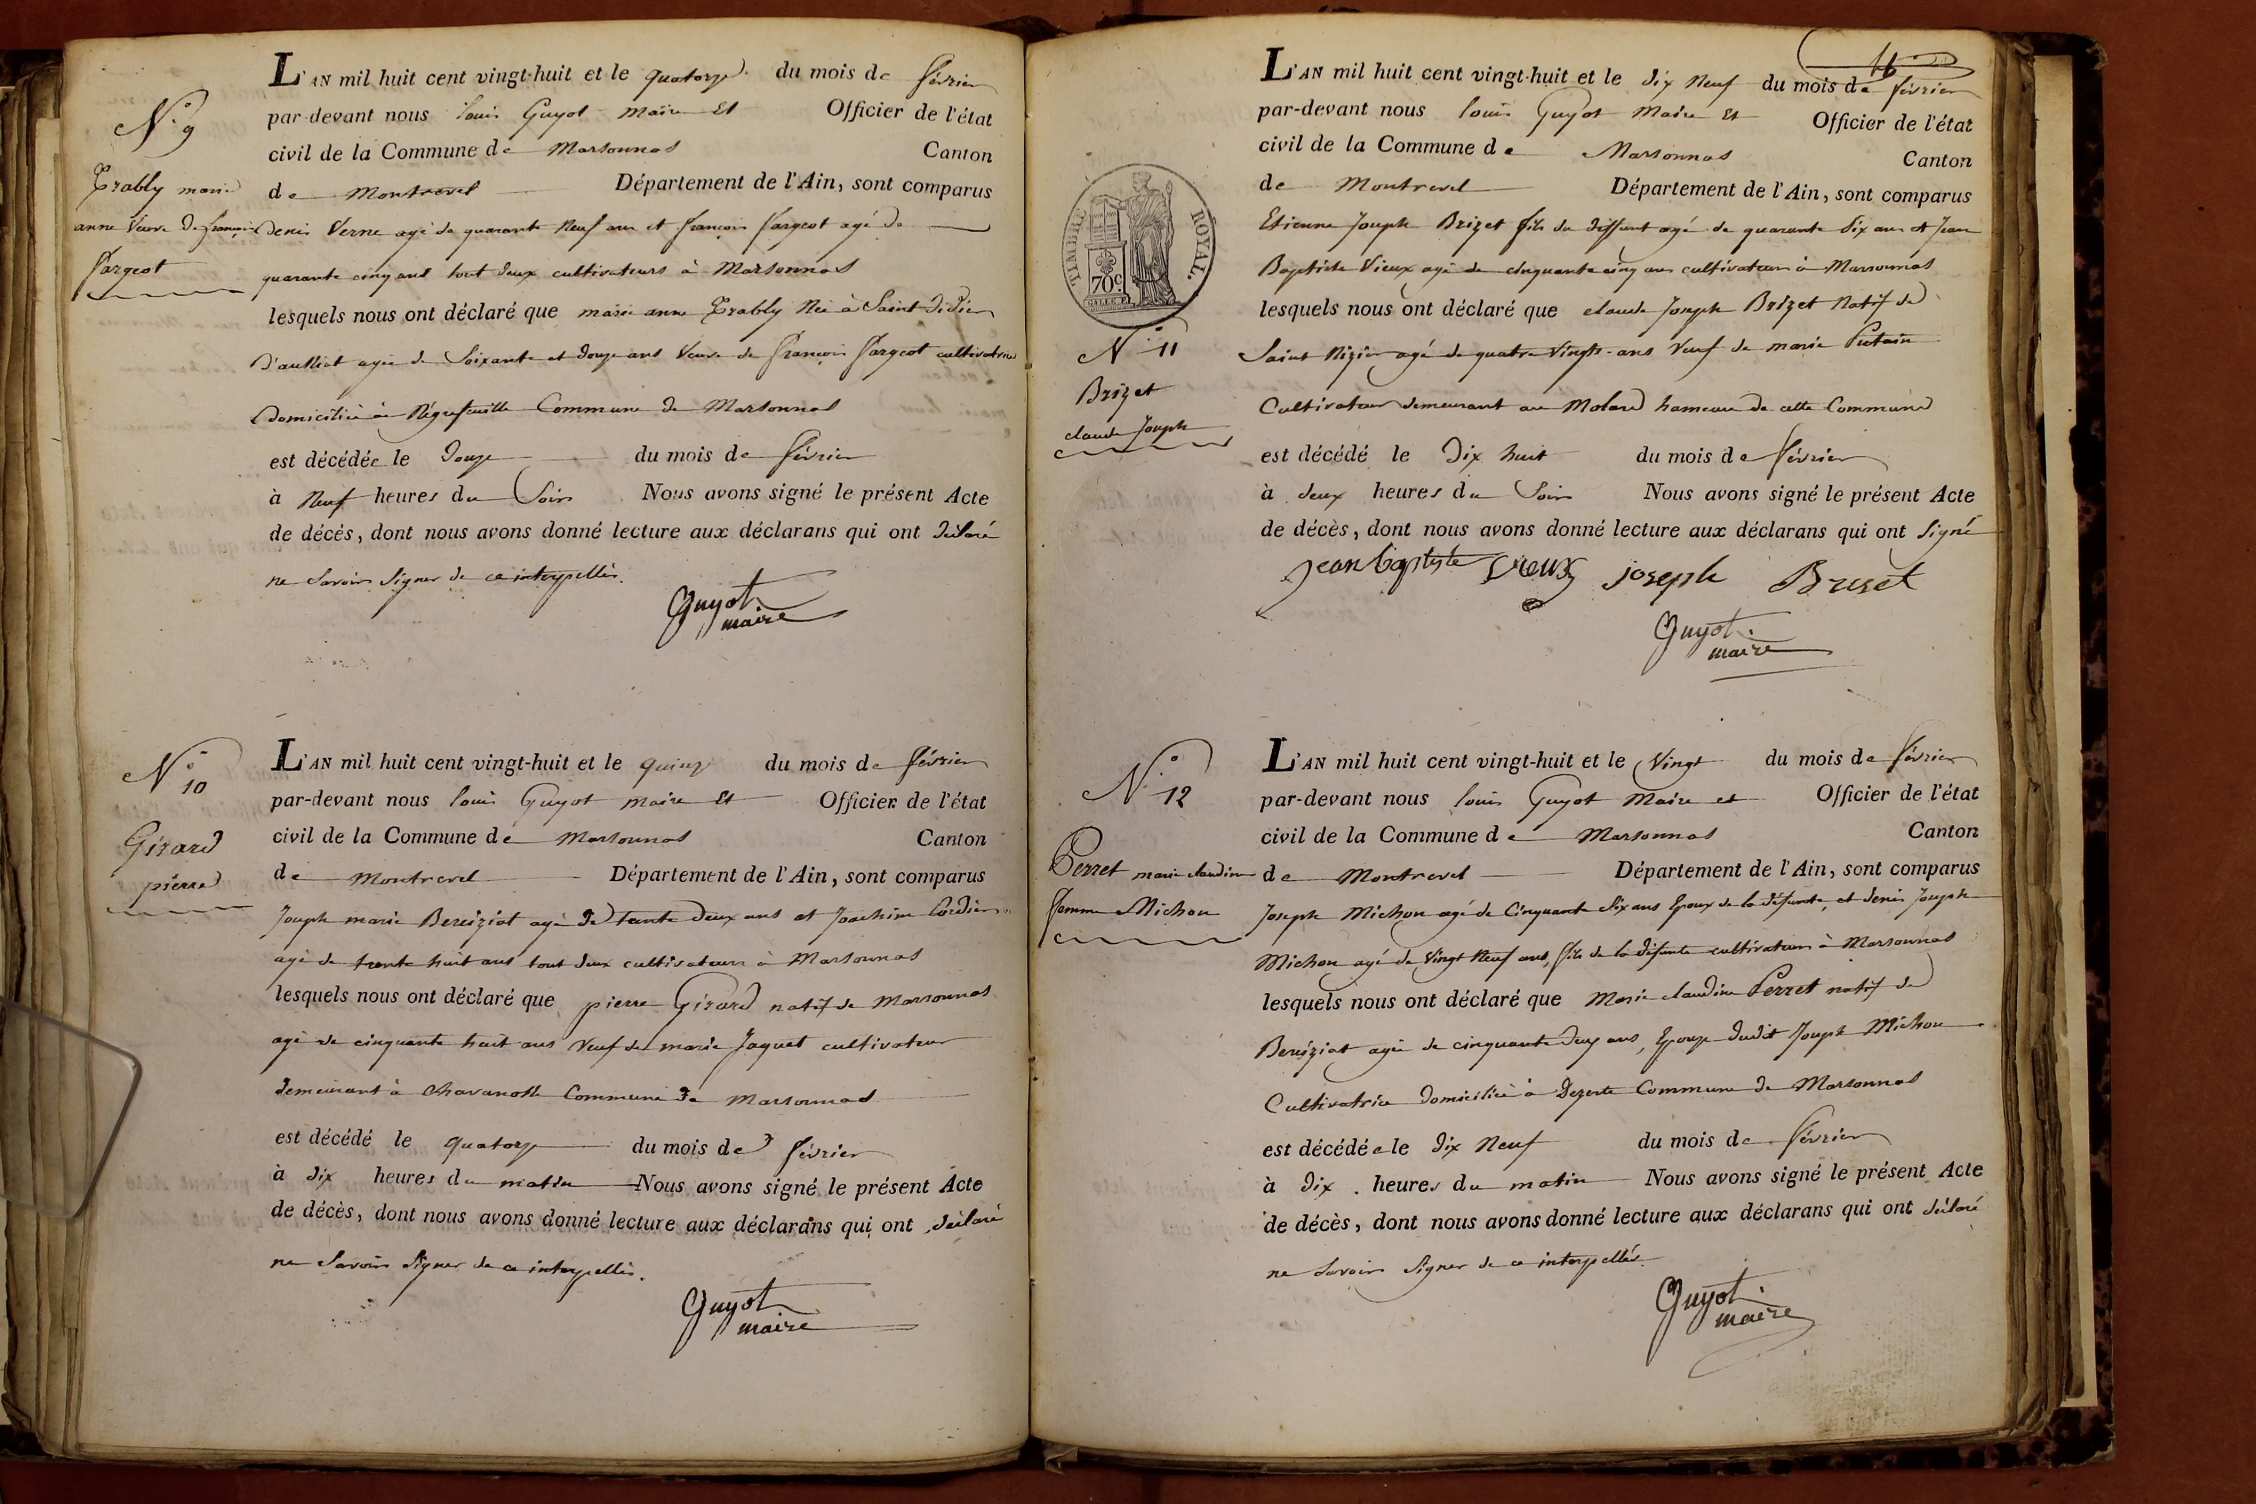 N.° 9
Trably marie
anne Veuve De françois
fargeot
L'AN mil huit cent vingt-huit et le quatorze du mois de février
par-devant nous louis Guyot maire Et Officier de l'état
civil de la Commune de Marsonnas Canton
de Montrevel Département de l'Ain, sont comparus
Denis Verne agé de quarante Neuf ans et françois fargeot agé de
quarante cinq ans tout deux cultivateurs à Marsonnas
lesquels nous ont déclaré que marie anne Trably Née à Saint Didier
D'aussiat agée de Soixante et douze ans Veuve de françois fargeot cultivatrice
Domiciliée à Négrefeuille Commune De Marsonnas
est décédée le Douze du mois de février
à Neuf heures du Soir Nous avons signé le présent Acte
de décès, dont nous avons donné lecture aux déclarans qui ont déclaré
ne Savoir Signer de ce interpellés.
Guyot
maire
N.° 10
Girard
pierre
L'AN mil huit cent vingt-huit et le quinze du mois de février
par-devant nous louis Guyot maire Et Officier de l'état
civil de la Commune de Marsonnas Canton
de Montrevel Département de l'Ain, sont comparus
Joseph marie Bereiziat agé De trente Deux ans et Joachim Cordier
agé de trente huit ans tout deux cultivateurs à Marsonnas
lesquels nous ont déclaré que pierre Girard natif de Marsonnas
agé de cinquante huit ans Veuf de marie Jaquet cultivateur
demeurant à Chavanosse Commune De Marsonnas
est décédé le quatorze du mois de février
à Dix heures du matin Nous avons signé le présent Acte
de décès, dont nous avons donné lecture aux déclarans qui ont déclaré
ne Savoir Signer de ce interpellés.
Guyot
maire
16
TIMBRE ROYAL.
70 c.
N.° 11
Brizet
claude Joseph
L'AN mil huit cent vingt-huit et le Dix Neuf du mois de février
par-devant nous louis Guyot Maire Et Officier de l'état
civil de la Commune de Marsonnas Canton
de Montrevel Département de l'Ain, sont comparus
Etienne Joseph Brizet fils du deffunt agé de quarante Six ans et Jean
Baptiste Vieux agé de cinquante cinq ans cultivateurs à Marsonnas
lesquels nous ont déclaré que claude Joseph Brizet Natif de
Saint Nizier agé de quatre Vingts ans Veuf de marie Putain
Cultivateur demeurant au Molard hameau de cette Commune
est décédé le Dix huit du mois de février
à deux heures du Soir Nous avons signé le présent Acte
de décès, dont nous avons donné lecture aux déclarans qui ont Signé
jean baptiste Vieux joseph Briset
Guyot
maire
N.° 12
Perret marie claudine
femme Michon
L'AN mil huit cent vingt-huit et le Vingt du mois de février
par-devant nous louis Guyot Maire et Officier de l'état
civil de la Commune de Marsonnas Canton
de Montrevel Département de l'Ain, sont comparus
Joseph Michon agé de Cinquante Six ans Epoux de la défunte, et denis Joseph
Michon agé de Vingt Neuf ans, fils de la défunte cultivateurs à Marsonnas
lesquels nous ont déclaré que Marie claudine Perret natif de
Bereiziat agée de cinquante Deux ans, Epouze dudit Joseph Michon
Cultivatrice Domiciliée à Dezerte Commune De Marsonnas
est décédée le Dix Neuf du mois de février
à Dix heures du matin Nous avons signé le présent Acte
de décès, dont nous avons donné lecture aux déclarans qui ont déclaré
ne Savoir Signer de ce interpellés
Guyot
maire